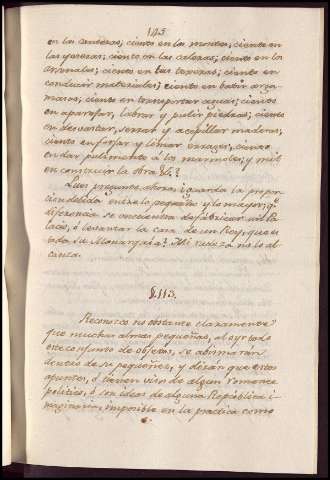 145.
en las canteras; ciento en los montes; ciento en
las yeseras; ciento en las caleras; ciento en los
arenales; ciento en las texeras; ciento en
conducir materiales; ciento en batir arga-
masas; ciento en transportar aguas; ciento
en aparejar, labrar y pulir piedras; ciento
en desvastar, serrar y acepillar maderas;
ciento en forjar y limar errages; ciento
en dar pulimento á los marmoles; y mil
en construir la obra &c?
pregunto ahora: i guarda la propor-
cion debida entre lo pequeño y lo mayor; q.e
diferencia se encuentra de fabricar un Pa-
lacio, ó levantar la casa de un Rey, que es
toda su Monarquia? Mi rudeza no lo al-
canza.
§.113.
Reconozco no obstante claramente
que muchas almas pequeñas, al ogtado
este conjunto de objetos, se abrumaran
dentro de su pequeñez, y dirán que estos
apuntes, ó tienen viso de algun romance
politico, ó son ideas de alguna Republica i-
maginaria, imposible en la practica como